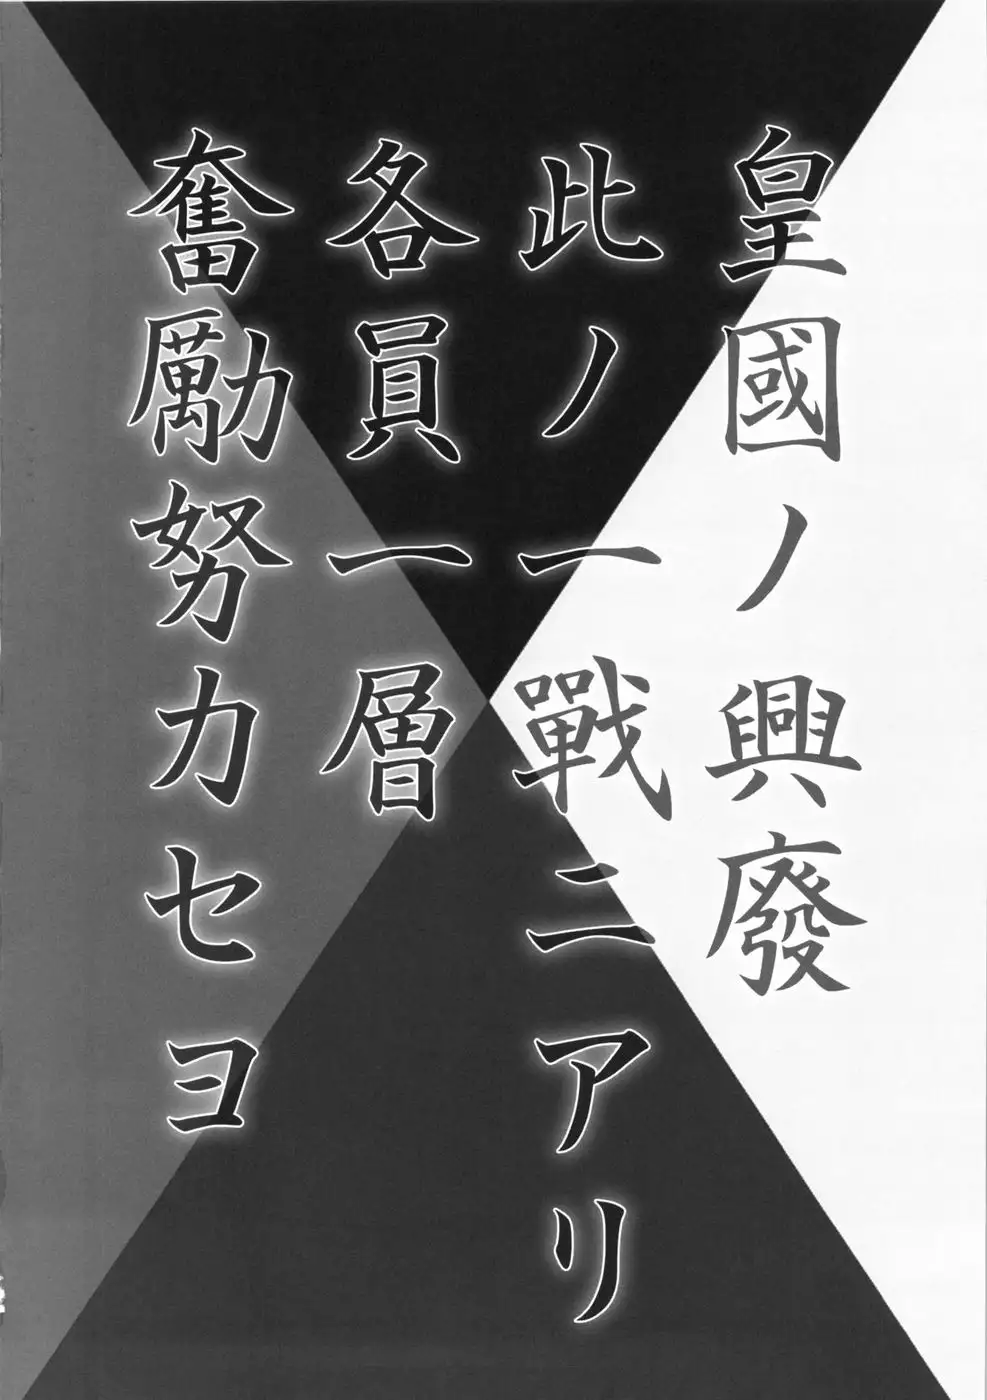 皇國ノ興廢
此ノ一戰ニアリ
各員一層
奮励努力セヨ